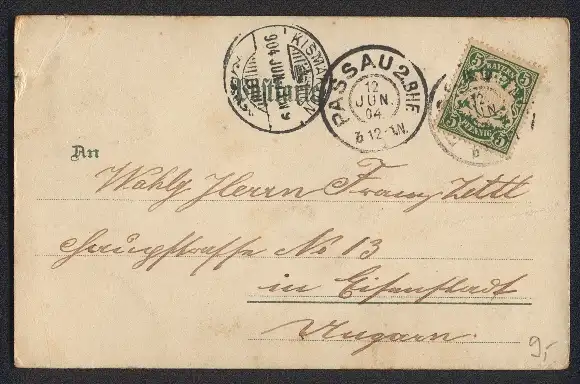 Postkarte
KISMARTON
904 JUN
PASSAU 2. BHF.
12
JUN.
04.
12-1N.
BAYERN
5 5
PFENNIG
5 5
An
Wohlg. Herrn Franz Zettl
Hauptstrasse No 13
in Eisenstadt
Ungarn.
9,-